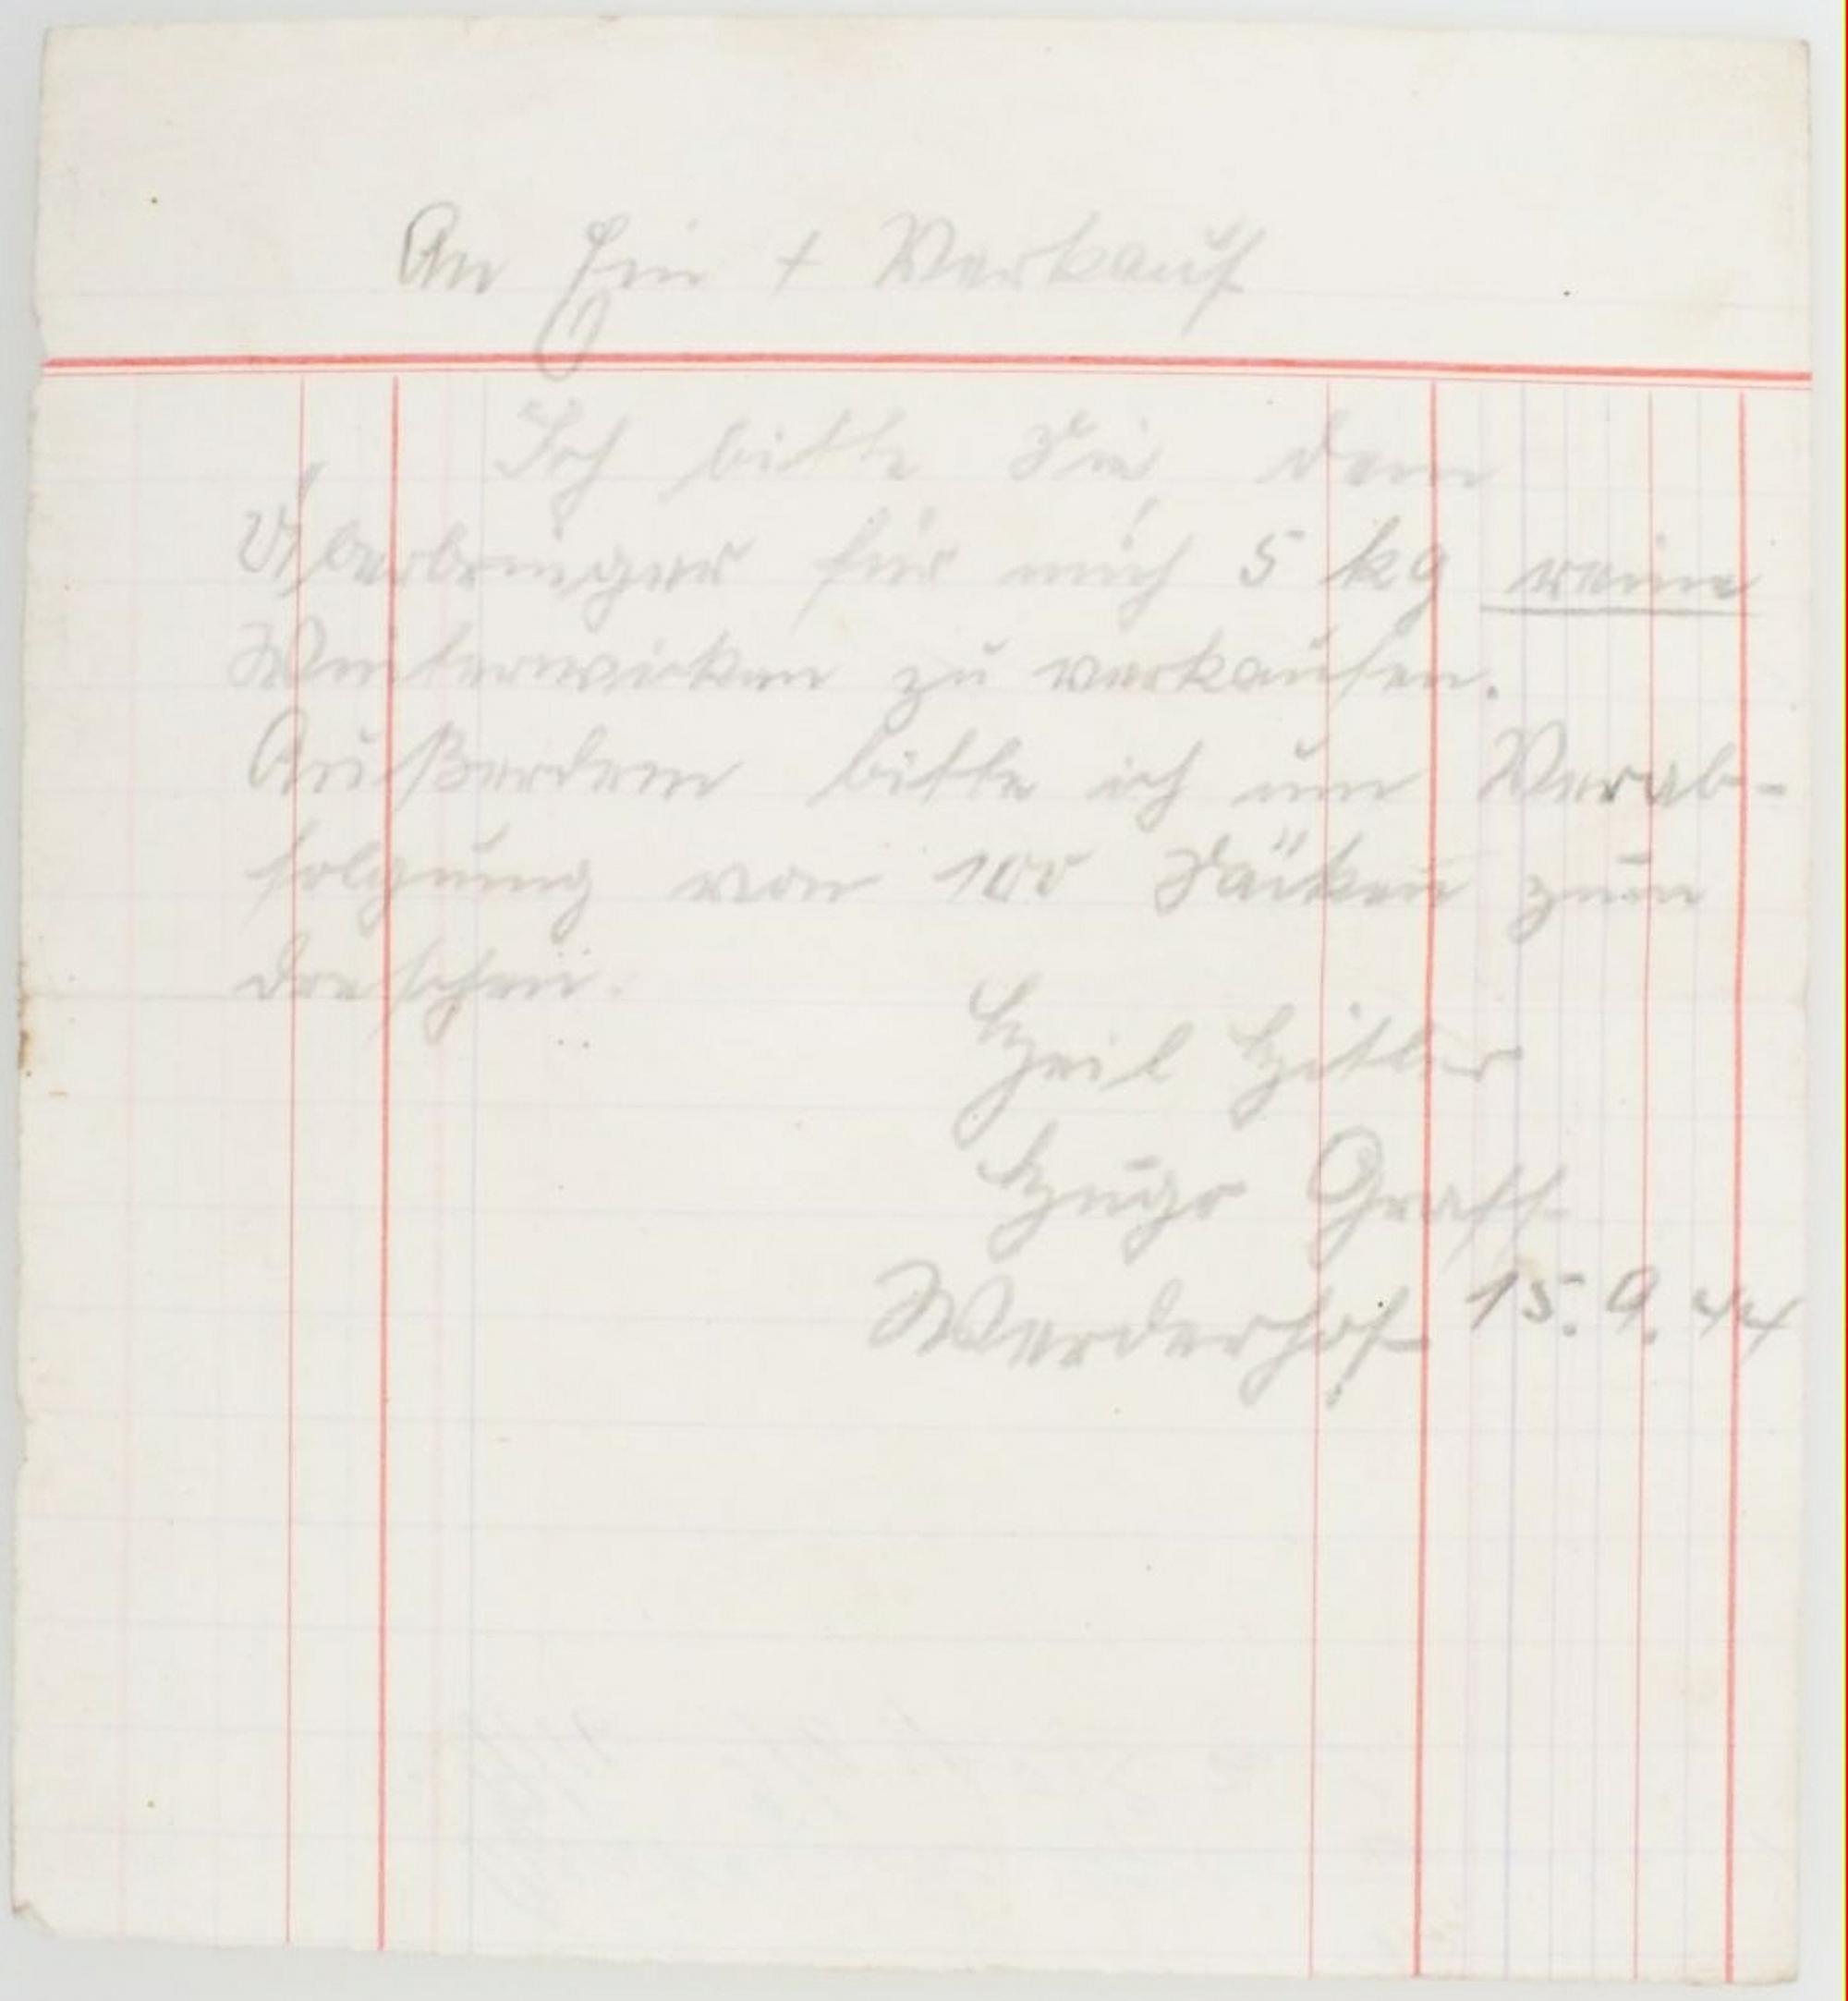 An Ein + Verkauf
Ich bitte Sie dem
Überbringer für mich 5 kg reine
Winterwicken zu verkaufen.
Außerdem bitte ich um Verab-
folgung von 100 Säcken zum
dreschen.
Heil Hitler
Hugo Graff
Werderhof 15.9.44